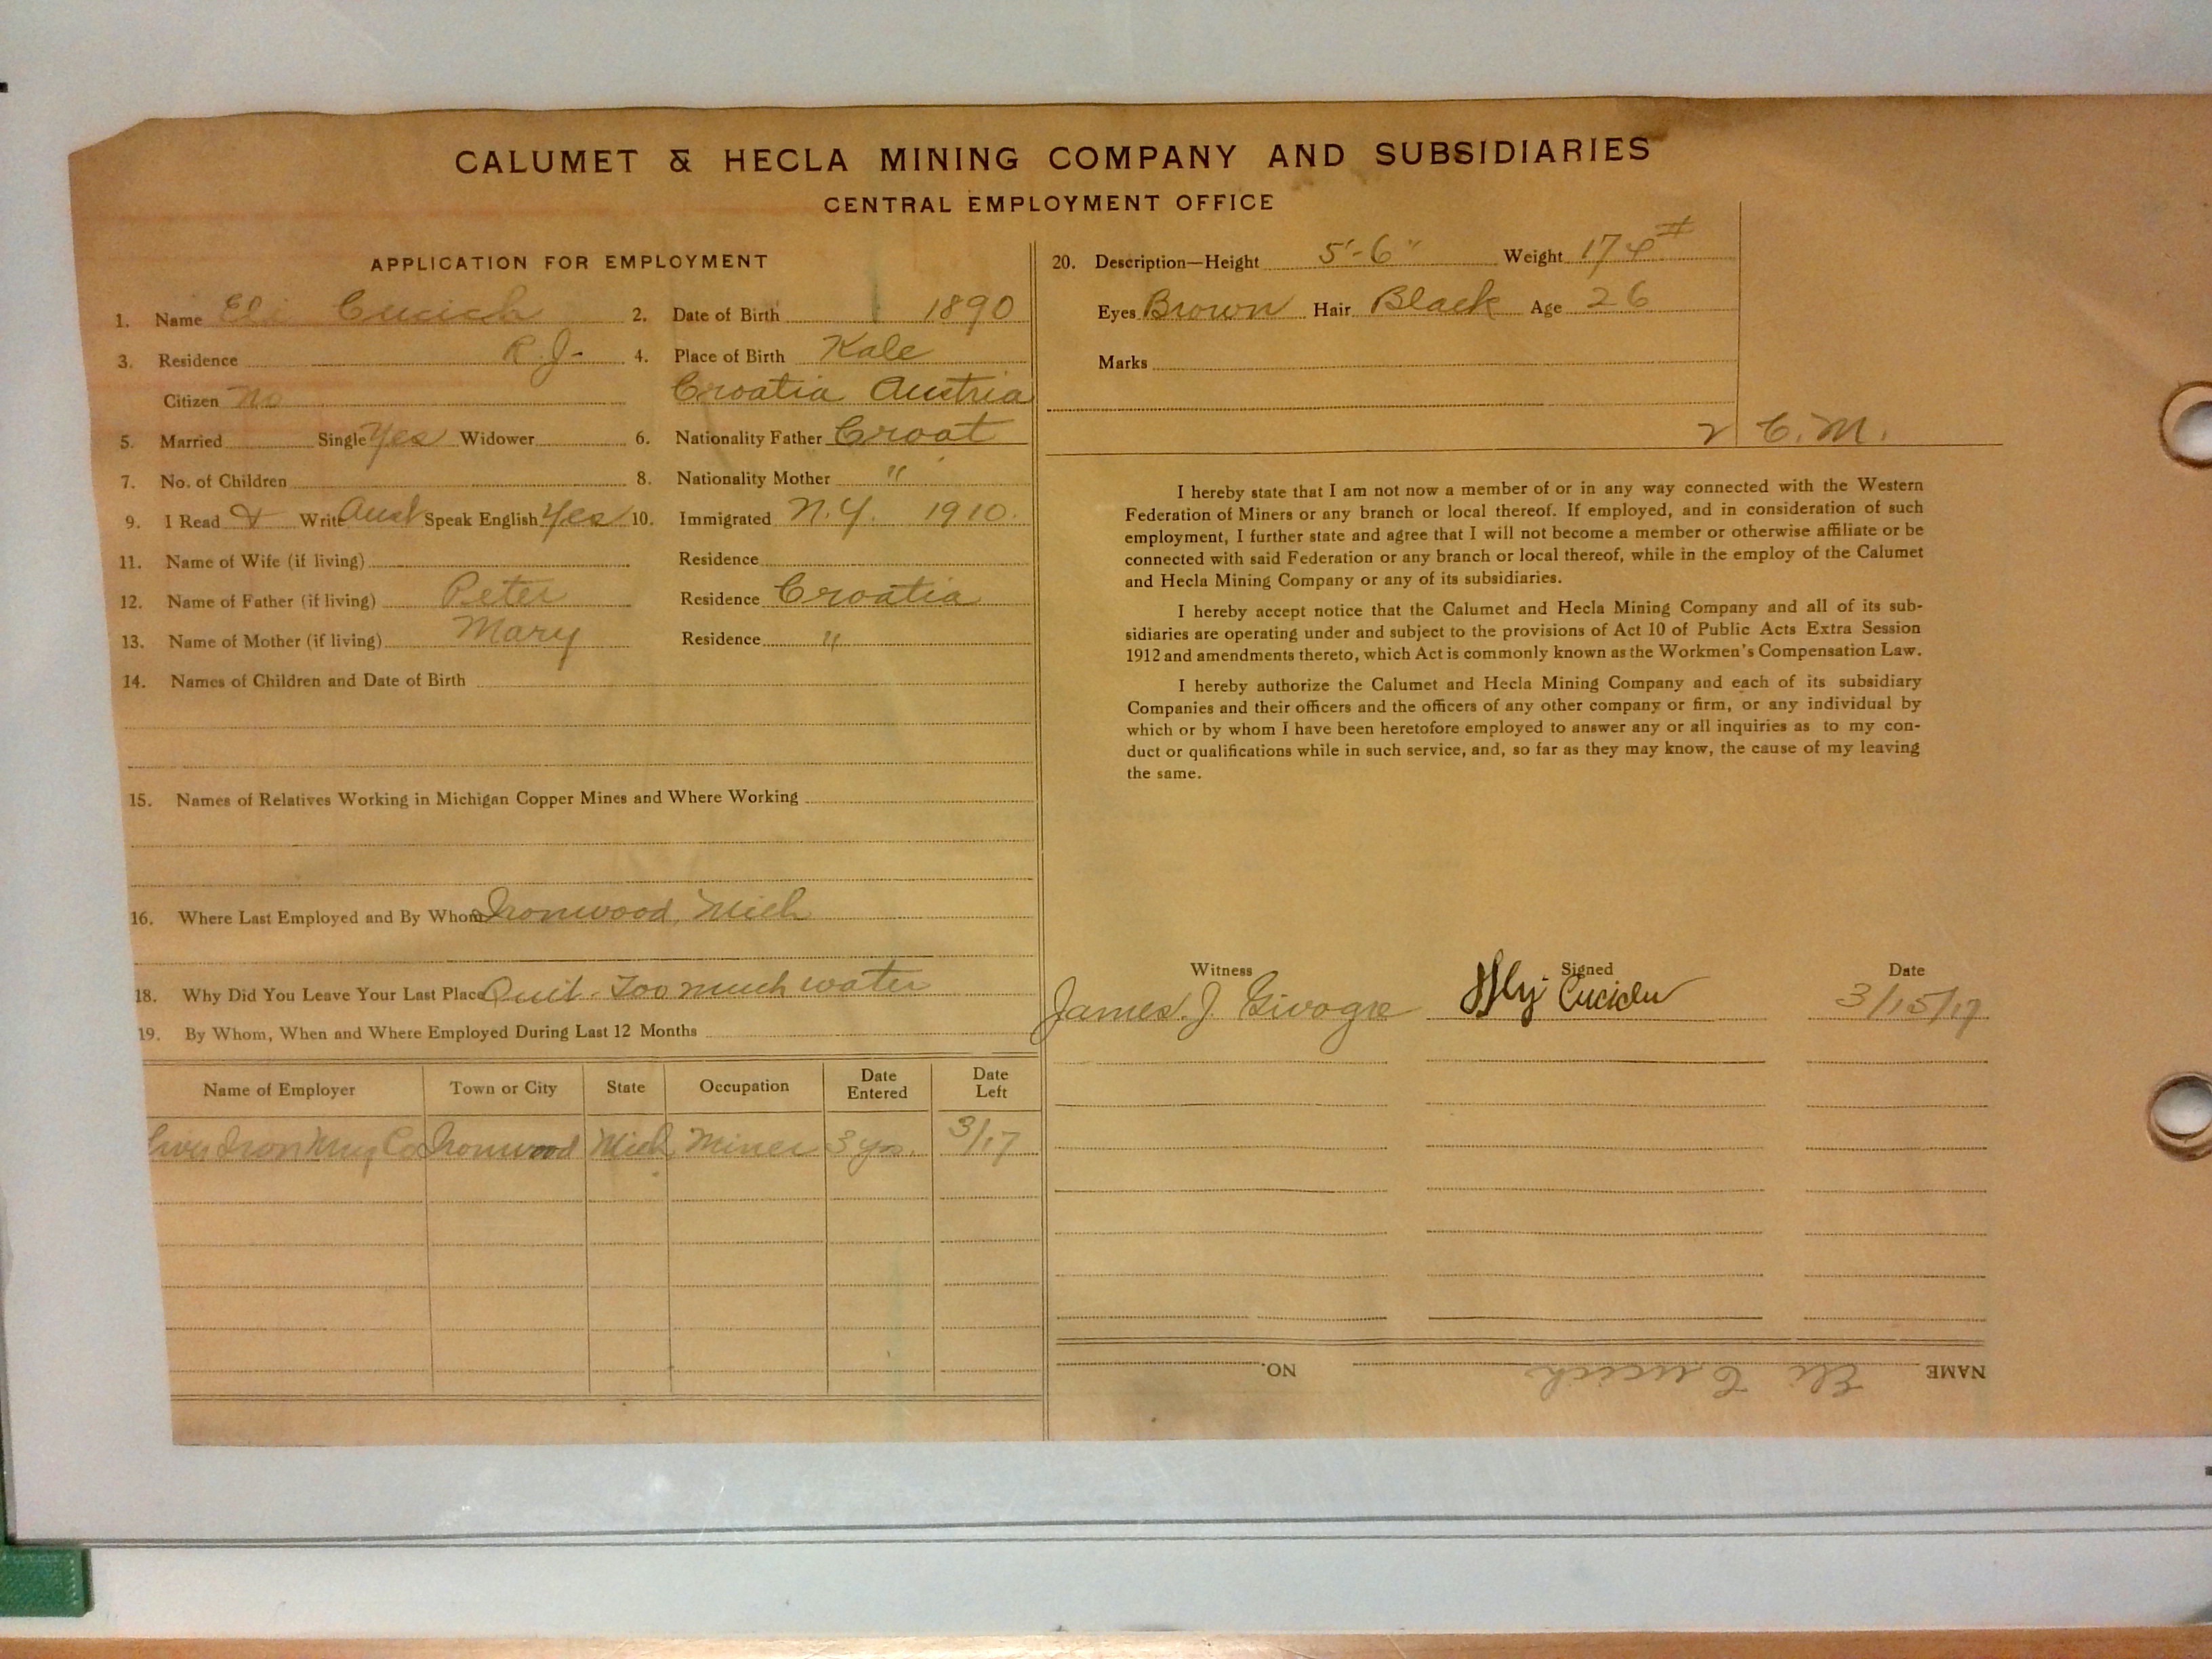 CALUMET & HECLA MINING COMPANY AND SUBSIDIARIES
CENTRAL EMPLOYMENT OFFICE
APPLICATION FOR EMPLOYMENT
1. Name Eli Cucich 2. Date of Birth 1890
3. Residence R.J. 4. Place of Birth Kale
Citizen No Croatia Austria
5. Married Single Yes Widower 6. Nationality Father Croat
7. No. of Children 8. Nationality Mother "
9. I Read & Write Aust Speak English Yes 10. Immigrated N.Y. 1910.
11. Name of Wife (if living) Residence
12. Name of Father (if living) Peter Residence Croatia
13. Name of Mother (if living) Mary Residence "
14. Names of Children and Date of Birth
15. Names of Relatives Working in Michigan Copper Mines and Where Working
16. Where Last Employed and By Whom Ironwood, Mich
18. Why Did You Leave Your Last Place Quit - Too much water
19. By Whom, When and Where Employed During Last 12 Months
Name of Employer Town or City State Occupation Date Entered Date Left
Iron Mng Co Ironwood Mich Miner 3 yrs. 3/17
20. Description—Height 5'-6" Weight 174#
Eyes Brown Hair Black Age 26
Marks
C. M.
I hereby state that I am not now a member of or in any way connected with the Western
Federation of Miners or any branch or local thereof. If employed, and in consideration of such
employment, I further state and agree that I will not become a member or otherwise affiliate or be
connected with said Federation or any branch or local thereof, while in the employ of the Calumet
and Hecla Mining Company or any of its subsidiaries.
I hereby accept notice that the Calumet and Hecla Mining Company and all of its sub-
sidiaries are operating under and subject to the provisions of Act 10 of Public Acts Extra Session
1912 and amendments thereto, which Act is commonly known as the Workmen's Compensation Law.
I hereby authorize the Calumet and Hecla Mining Company and each of its subsidiary
Companies and their officers and the officers of any other company or firm, or any individual by
which or by whom I have been heretofore employed to answer any or all inquiries as to my con-
duct or qualifications while in such service, and, so far as they may know, the cause of my leaving
the same.
Witness Signed Date
James J. Givogre 3/15/17
NAME Eli Cucich NO.